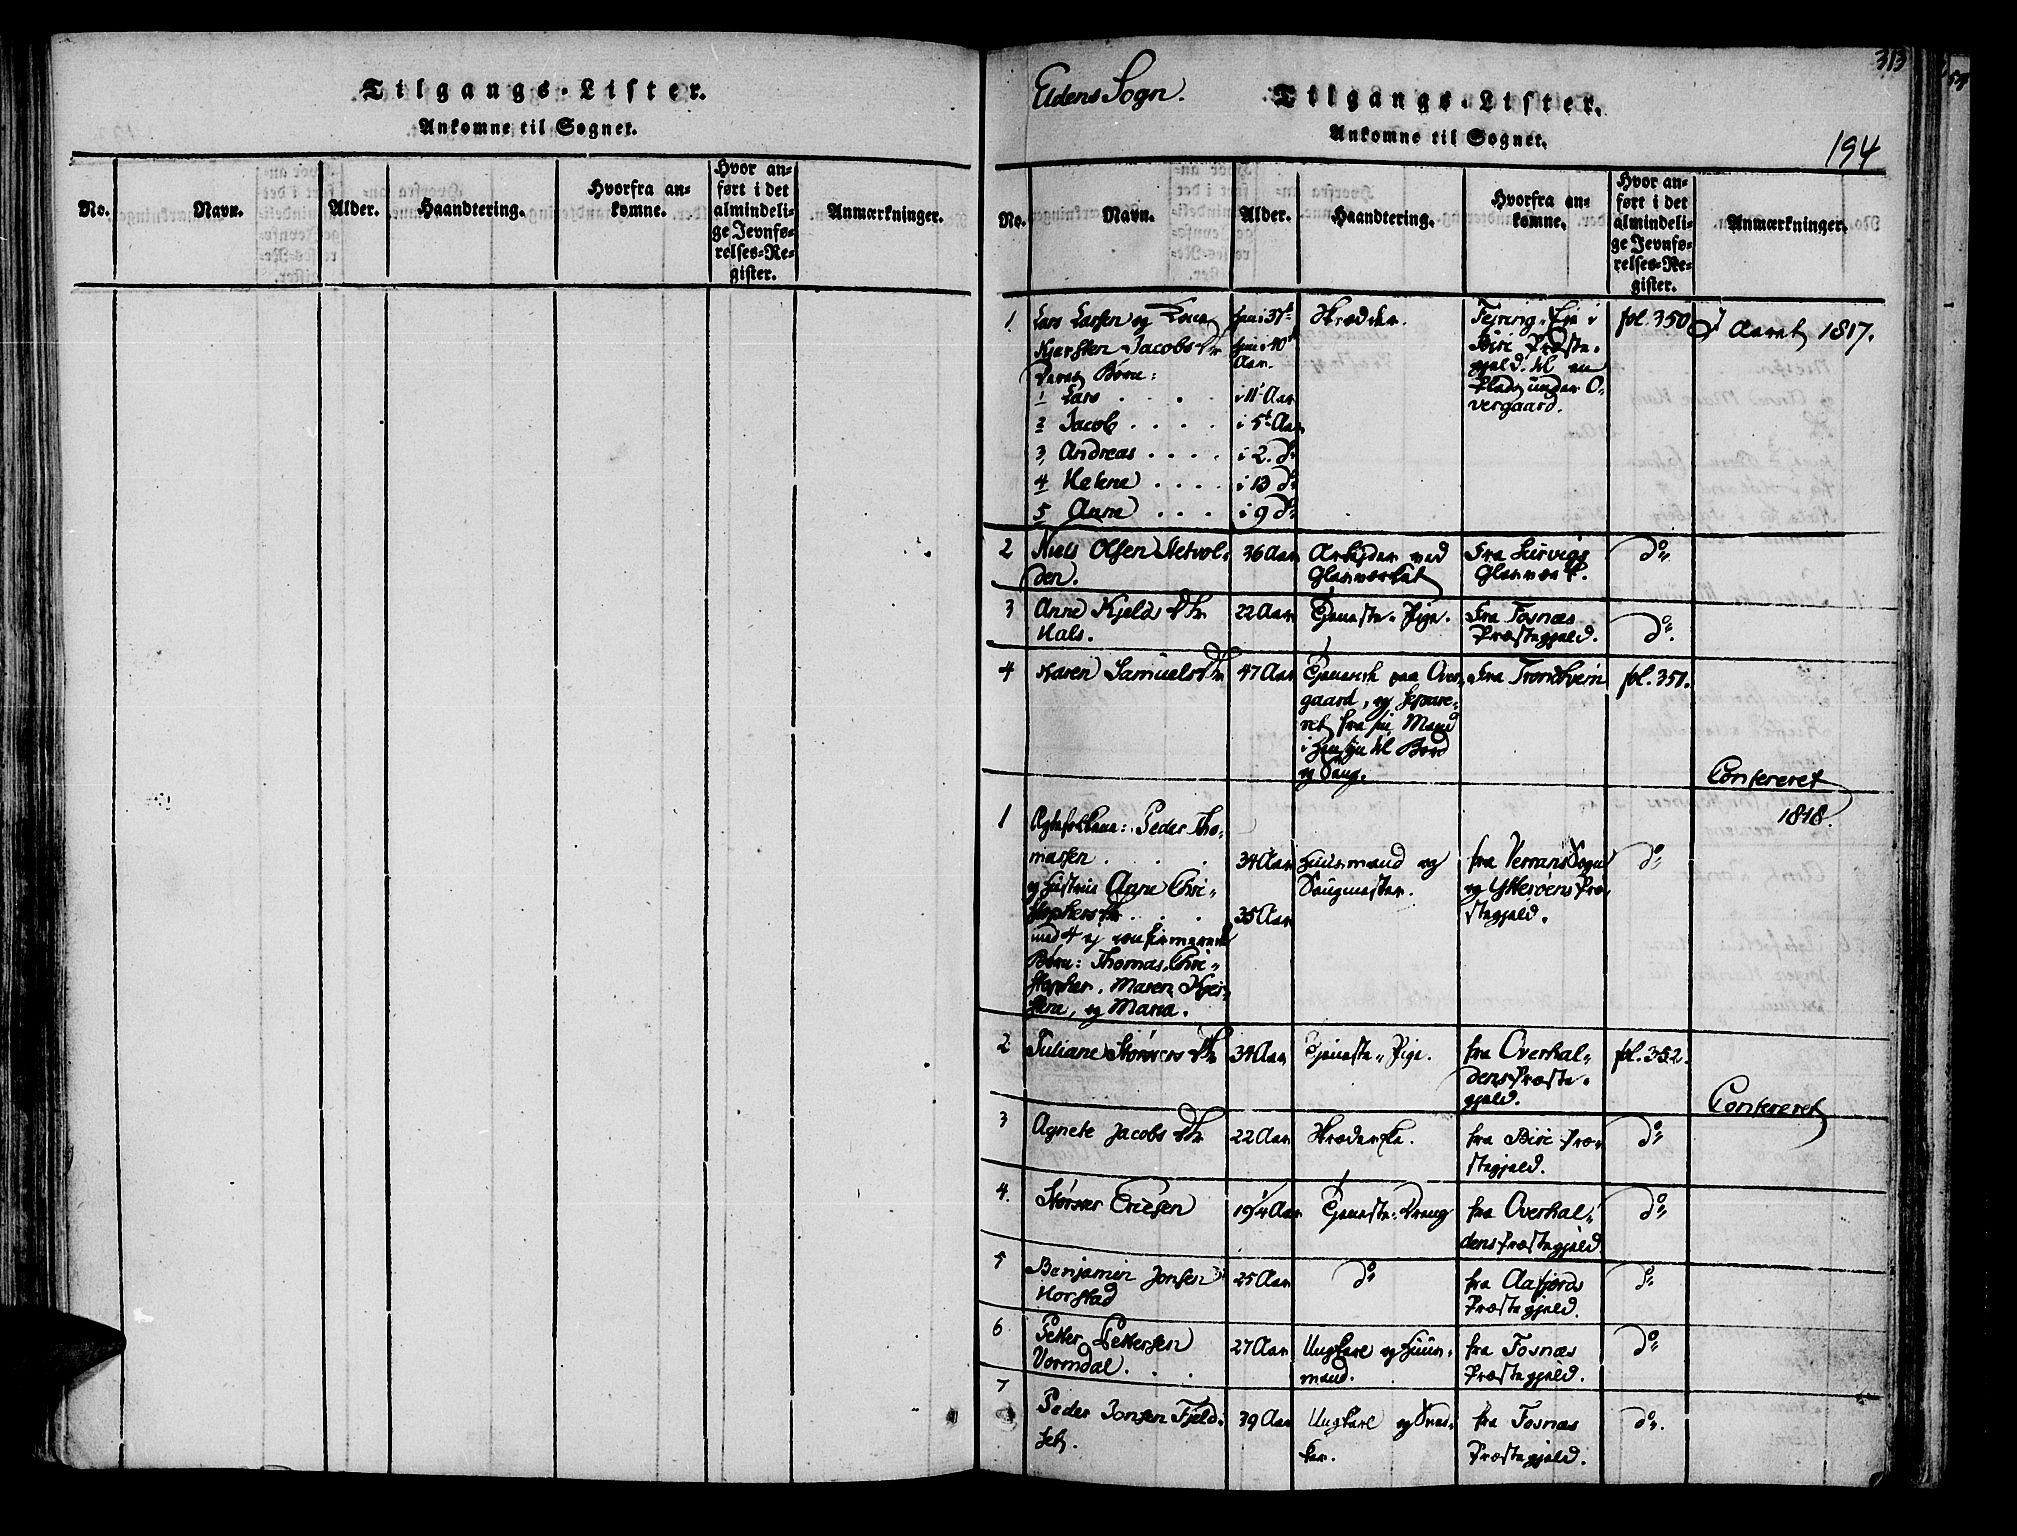 Tilgangs-Lister.
Ankomne til Sognet.
No.
Navn.
Alder.
Haandtering.
Hvorfra an-
komne.
Hvor an-
ført i det
almindeli-
ge Jevnfø-
relses-Re-
gister.
Anmærkninger.
313
Eidens Sogn.
Tilgangs-Lister.
Ankomne til Sognet.
194
No.
Navn.
Alder.
Haandtering.
Hvorfra an-
komne.
Hvor an-
ført i det
almindeli-
ge Jevnfø-
relses-Re-
gister.
Anmærkninger.
1. Lars Larsen og Kone
Kjersten Jacobs Dr
deres Børn:
1 Lars . . . . i 11t Aar
2 Jacob . . . . i 5t Aar
3, Andreas . . . . i 2. do
4 Helene . . . . i 13 do
5 Anne . . . i 9 do
han i 37t
hun i 40t
Aar.
Skrædder.
Biri Præste-
gjeld. til en
Plads under O-
vergaard.
fol. 350
I Aaret 1817.
2 Niels Olsen Setvol-
den.
36 Aar
Arbejder ved
Glasværket
Fra Hurvigs
Glasværk.
do
3 Anne Kjelds Dtr
Hals.
22 Aar
Tjeneste-Pige.
Fra Fosnæs
Præstegjeld.
do.
4 Karen Samuels Dr
47 Aar
Tjeneste paa Over-
gaard, og separe-
ret fra sin Mand
i Hensyn til Bord
og Seng.
Fra Trondhiem
fol. 351.
Confereret
1818.
1 Ægtefolkene: Peder Tho-
massen . . . . 34 Aar
og Hustrue Anne Chri-
stophers Dr. . . . 35 Aar
med 4 ej confirmerede
Børn: Thomas, Chri-
stopher, Maren Kjer-
stine, og Maria.
Huusmand og
Saugmester.
fra Verrans Sogn
og Ytterøens Præ-
stegjeld.
do
2 Juliane Størkers Dr
34 Aar
Tjeneste-Pige.
fra Overhal-
dens Præste-
gjeld.
fol. 352.
Confereret
3 Agnete Jacobs Dtr
22 Aar
Skræderske.
fra Biri Præ-
stegjeld.
do
4. Størker Ericsen
19 1/4 Aar
Tjeneste-Dreng
fra Overhal-
dens Præstegjeld.
do
5 Benjamin Jonsen
Horstad
25 Aar
do
fra Aafjords
Præstegjeld.
do
6 Petter Pettersen
Vormdal. . .
27 Aar
Ungkarl og Huus-
mand.
fra Fosnæs
Præstegjeld.
do
7 Peder Jonsen Fjeld-
seth.
39 Aar
Ungkarl og Snæ-
ker.
fra Fosnæs
Præstegjeld.
do.